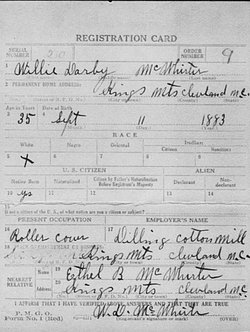 REGISTRATION CARD
SERIAL NUMBER 210 ORDER NUMBER 9
1 Willie Darby McWhirter
2 PERMANENT HOME ADDRESS:
Kings Mts Cleveland N.C.
Age in Years Date of Birth
3 35 4 Sept 11 1883
RACE
White Negro Oriental Indian
5 X 6 7 8 9
U. S. CITIZEN ALIEN
Native Born Naturalized Citizen by Father's Naturalization Before Registrant's Majority Declarant Non-declarant
10 yes 11 12 13 14
15 If not a citizen of the U. S., of what nation are you a citizen or subject?
PRESENT OCCUPATION EMPLOYER'S NAME
16 Roller cover 17 Dilling cotton Mill
18 Kings Mts Cleveland N.C.
NEAREST RELATIVE
19 Ethel B McWhirter
20 Kings Mts Cleveland N.C.
I AFFIRM THAT I HAVE VERIFIED ABOVE ANSWERS AND THAT THEY ARE TRUE
P. M. G. O.
Form No. 1 (Red) W. D. McWhirter